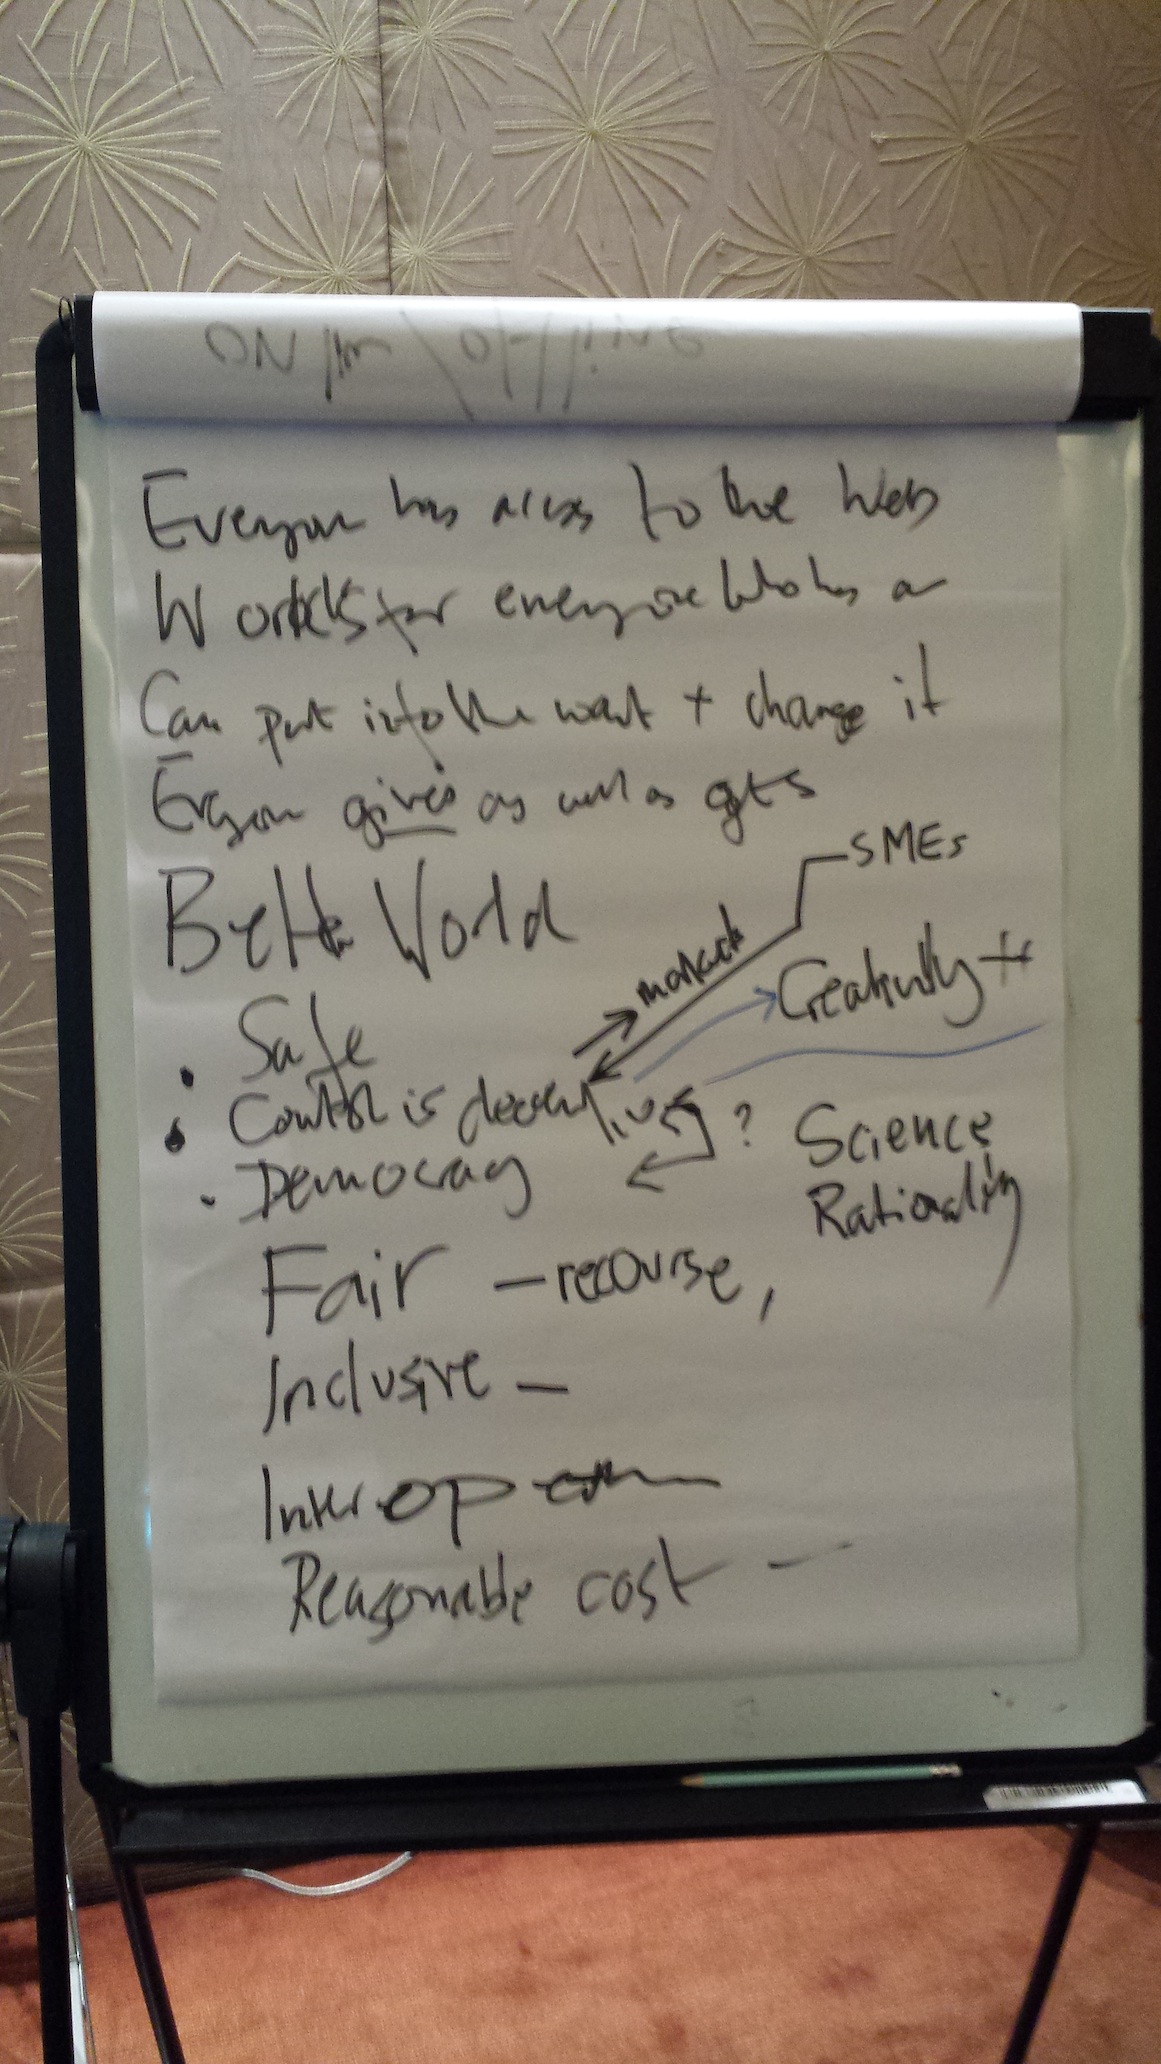 Everyone has access to the Web
Works for everyone who has
Can put into the want + change it
Everyone gives as well as gets
SMEs
Better World
markets
Creativity ++
Safe
Control is
?
Science
Democracy
Rationality
Fair — recourse,
Inclusive —
Interop
Reasonable cost —